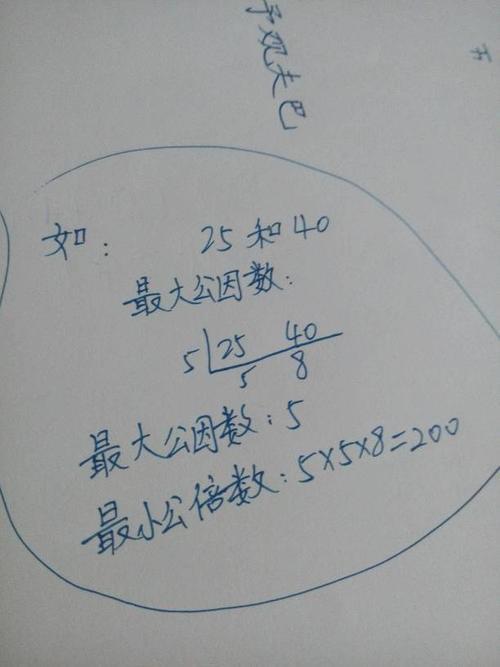 予观夫巴
如: 25和40
最大公因数:
5 25 40
5 8
最大公因数: 5
最小公倍数: 5×5×8=200